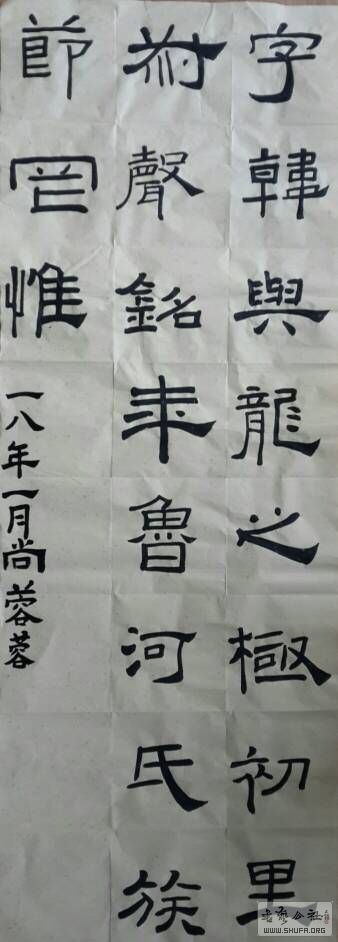 字韓與龍之極初里
聲銘年魯河氏族
節罔惟
一八年一月尚蓉蓉
WWW.SHUFA.ORG